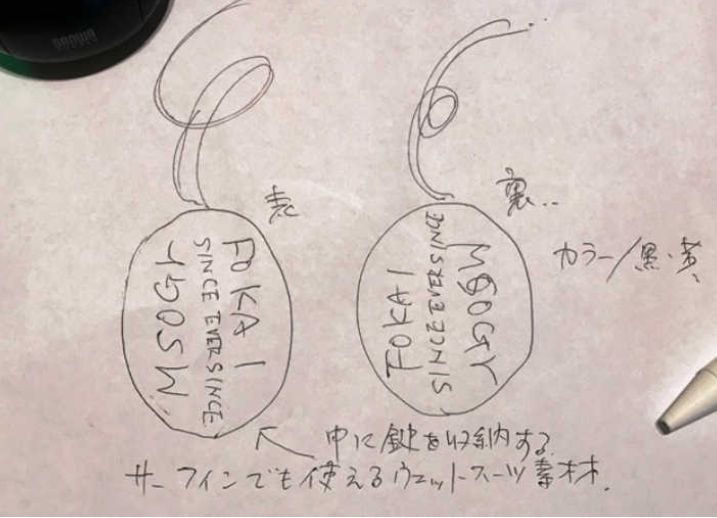 表
FOKAI
SINCE EVERSINCE
裏..
FOKAI
SINCE EVERSINCE
カラー/黒・黄
中に鍵を収納する
サーフィンでも使えるウェットスーツ素材.